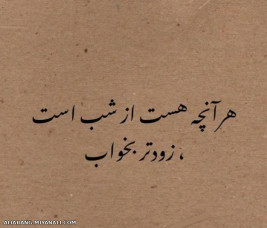 هر آنچه هست از شب است
، زودتر بخواب
ALIARANG.MIYANALI.COM